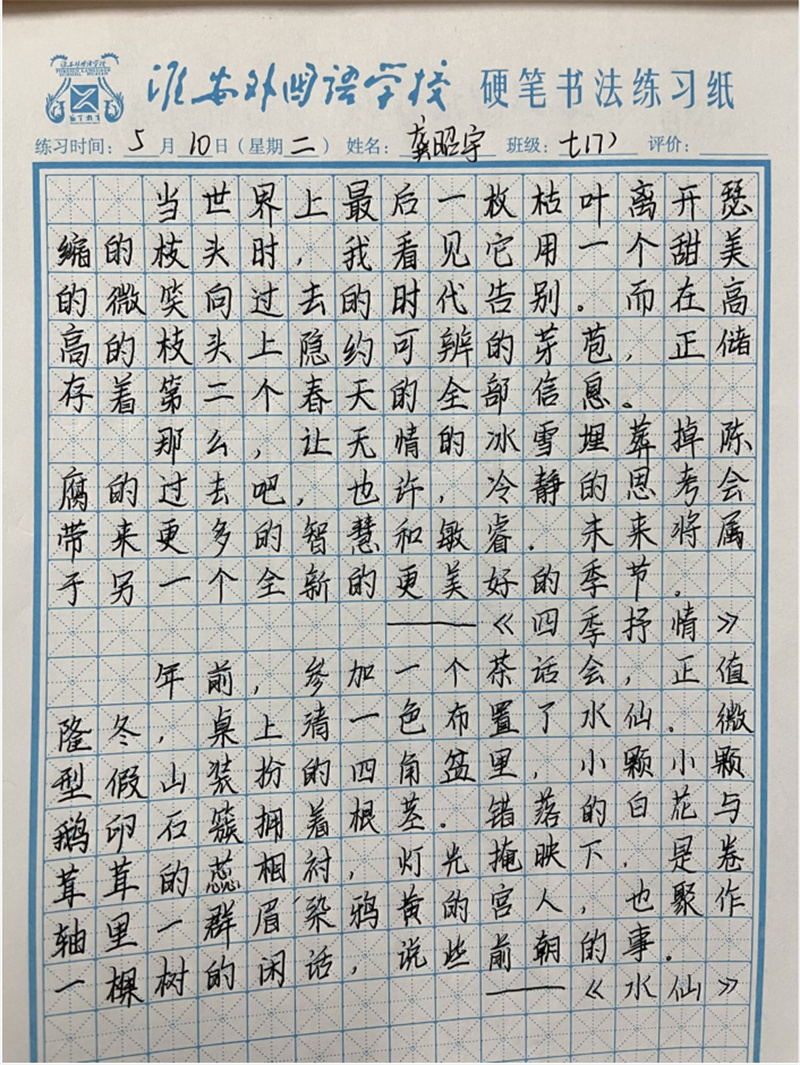 淮安外国语学校 硬笔书法练习纸
练习时间：5月10日（星期二） 姓名：龚昭宇 班级：七(17) 评价：
当世界上最后一枚枯叶离开瑟
缩的枝头时，我看见它用一个甜美
的微笑向过去的时代告别。而在高
高的枝头上隐约可辨的芽苞，正储
存着第二个春天的全部信息。
那么，让无情的冰雪埋葬掉陈
腐的过去吧，也许，冷静的思考会
带来更多的智慧和敏睿．未来将属
于另一个全新的更美好的季节。
——《四季抒情》
年前，参加一个茶话会，正值
隆冬，桌上清一色布置了水仙．微
型假山装扮的四角盆里，小颗小颗
鹅卵石簇拥着根茎。错落的白花与
茸茸的蕊相衬，灯光掩映下，是卷
轴里一群眉染鸦黄的宫人，也聚作
一棵树的闲话，说些前朝的事。
——《水仙》